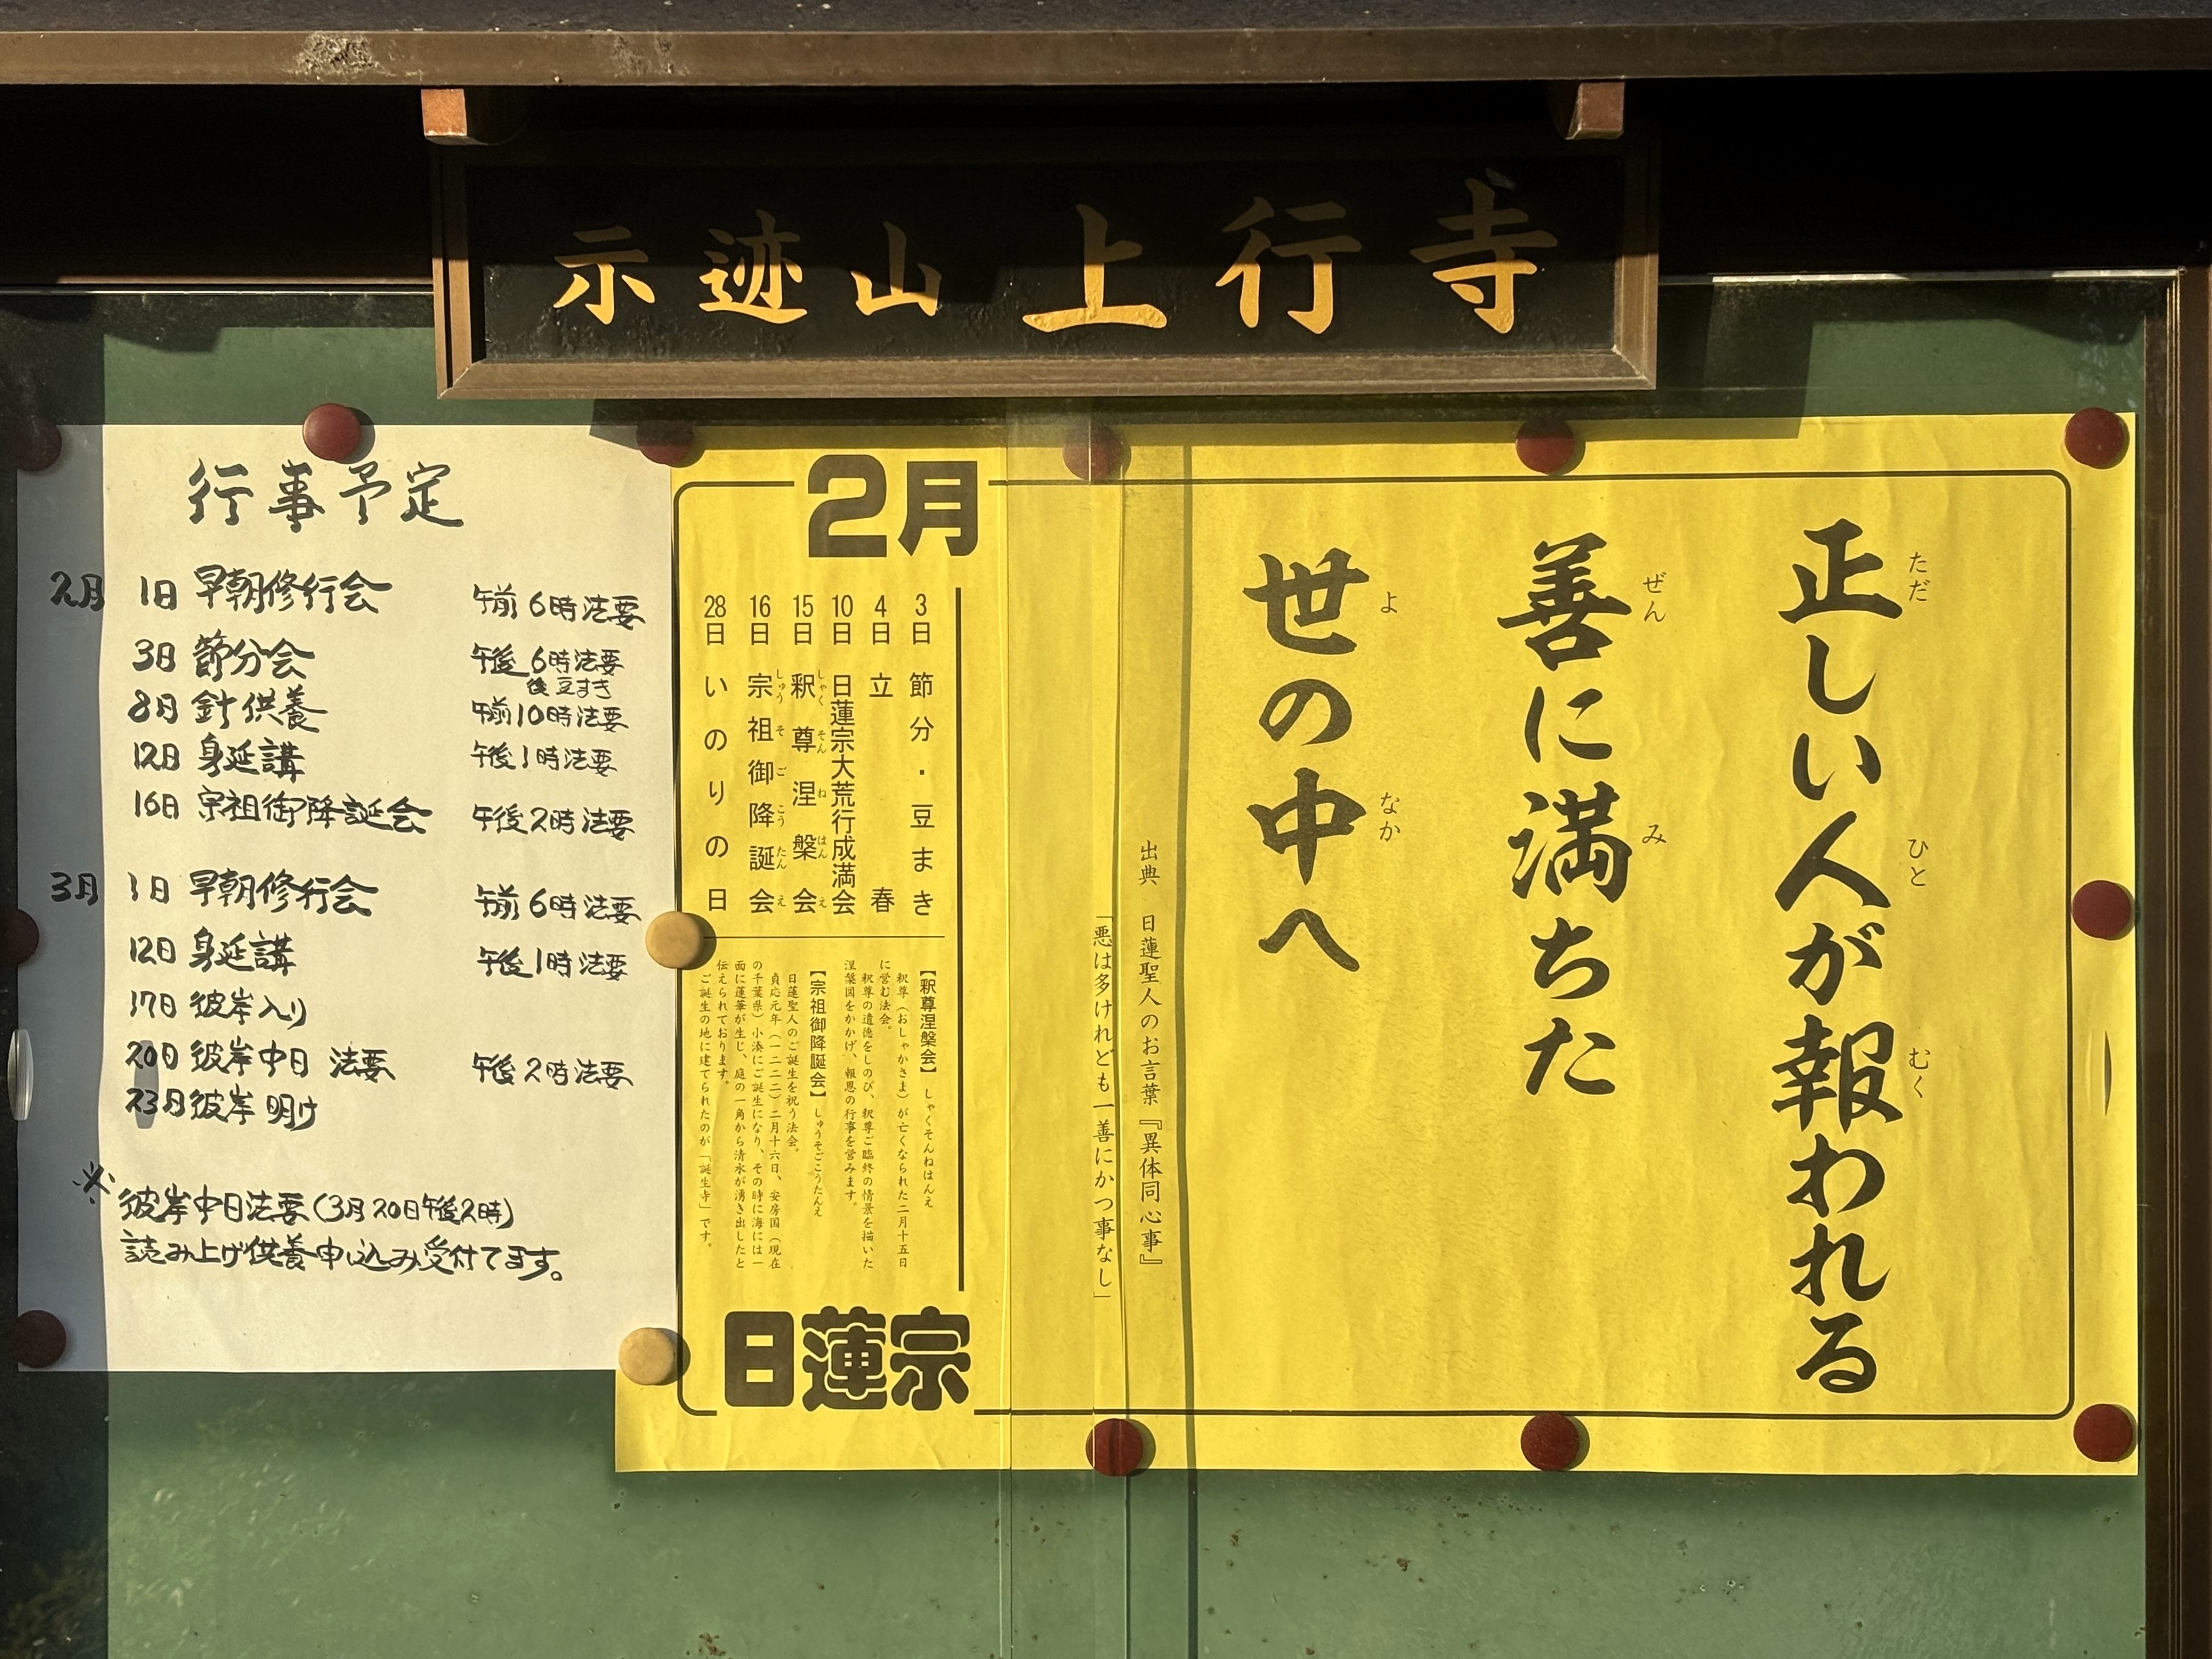 示迹山上行寺
行事予定
2月 1日 早朝修行会 午前6時法要
3日 節分会 午後6時法要
後豆まき
8日 針供養 午前10時法要
12日 身延講 午後1時法要
16日 宗祖御降誕会 午後2時法要
3月 1日 早朝修行会 午前6時法要
12日 身延講 午後1時法要
17日 彼岸入り
20日 彼岸中日 法要 午後2時法要
23日 彼岸明け
※彼岸中日法要(3月20日午後2時)
読み上げ供養申し込み受付てます。
正しい人が報われる
ただ ひと むく
善に満ちた
ぜん み
世の中へ
よ なか
出典 日蓮聖人のお言葉『異体同心事』
「悪は多けれども一善にかつ事なし」
2月
3日 節分・豆まき
4日 立春
10日 日蓮宗大荒行成満会
15日 釈尊涅槃会
しゃくそんねはんえ
16日 宗祖御降誕会
しゅうそごこうたんえ
28日 いのりの日
【釈尊涅槃会】しゃくそんねはんえ
釈尊(おしゃかさま)が亡くなられた二月十五日
に営む法会。
釈尊の遺徳をしのび、釈尊ご臨終の情景を描いた
涅槃図をかかげ、報恩の行事を営みます。
【宗祖御降誕会】しゅうそごこうたんえ
日蓮聖人のご誕生を祝う法会。
貞応元年(一二二二)二月十六日、安房国(現在
の千葉県)小湊にご誕生になり、その時に海には一
面に蓮華が生じ、庭の一角から清水が湧き出したと
伝えられております。
ご誕生の地に建てられたのが「誕生寺」です。
日蓮宗